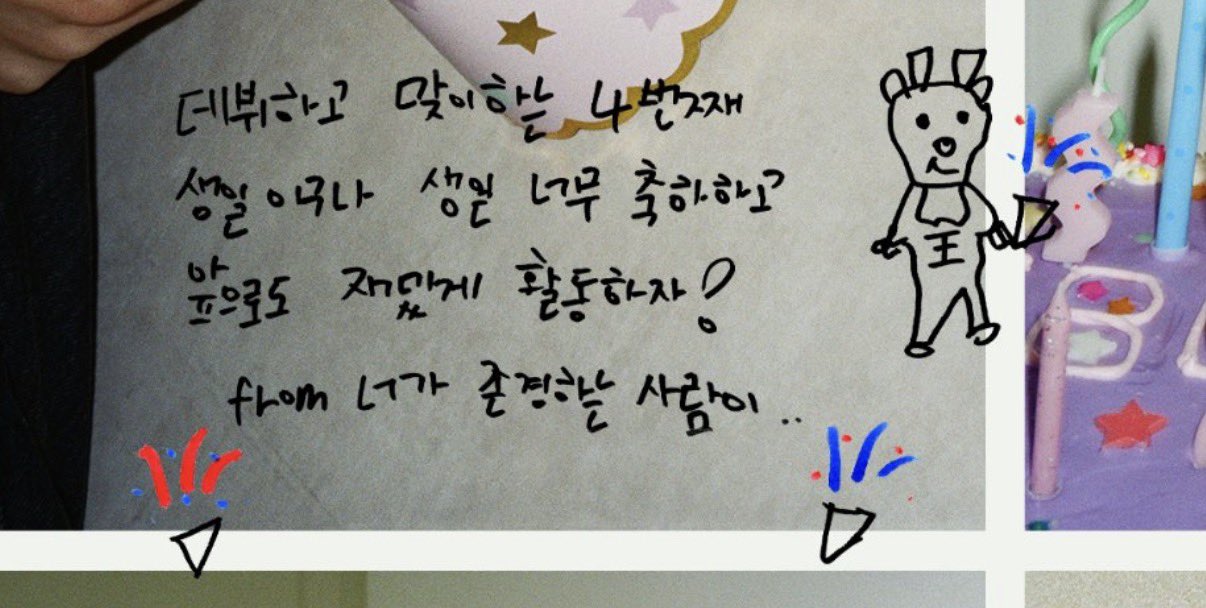 데뷔하고 맞이하는 4번째
생일이구나 생일 너무 축하하고
앞으로도 재밌게 활동하자!
from 너가 존경하는 사람이..
王